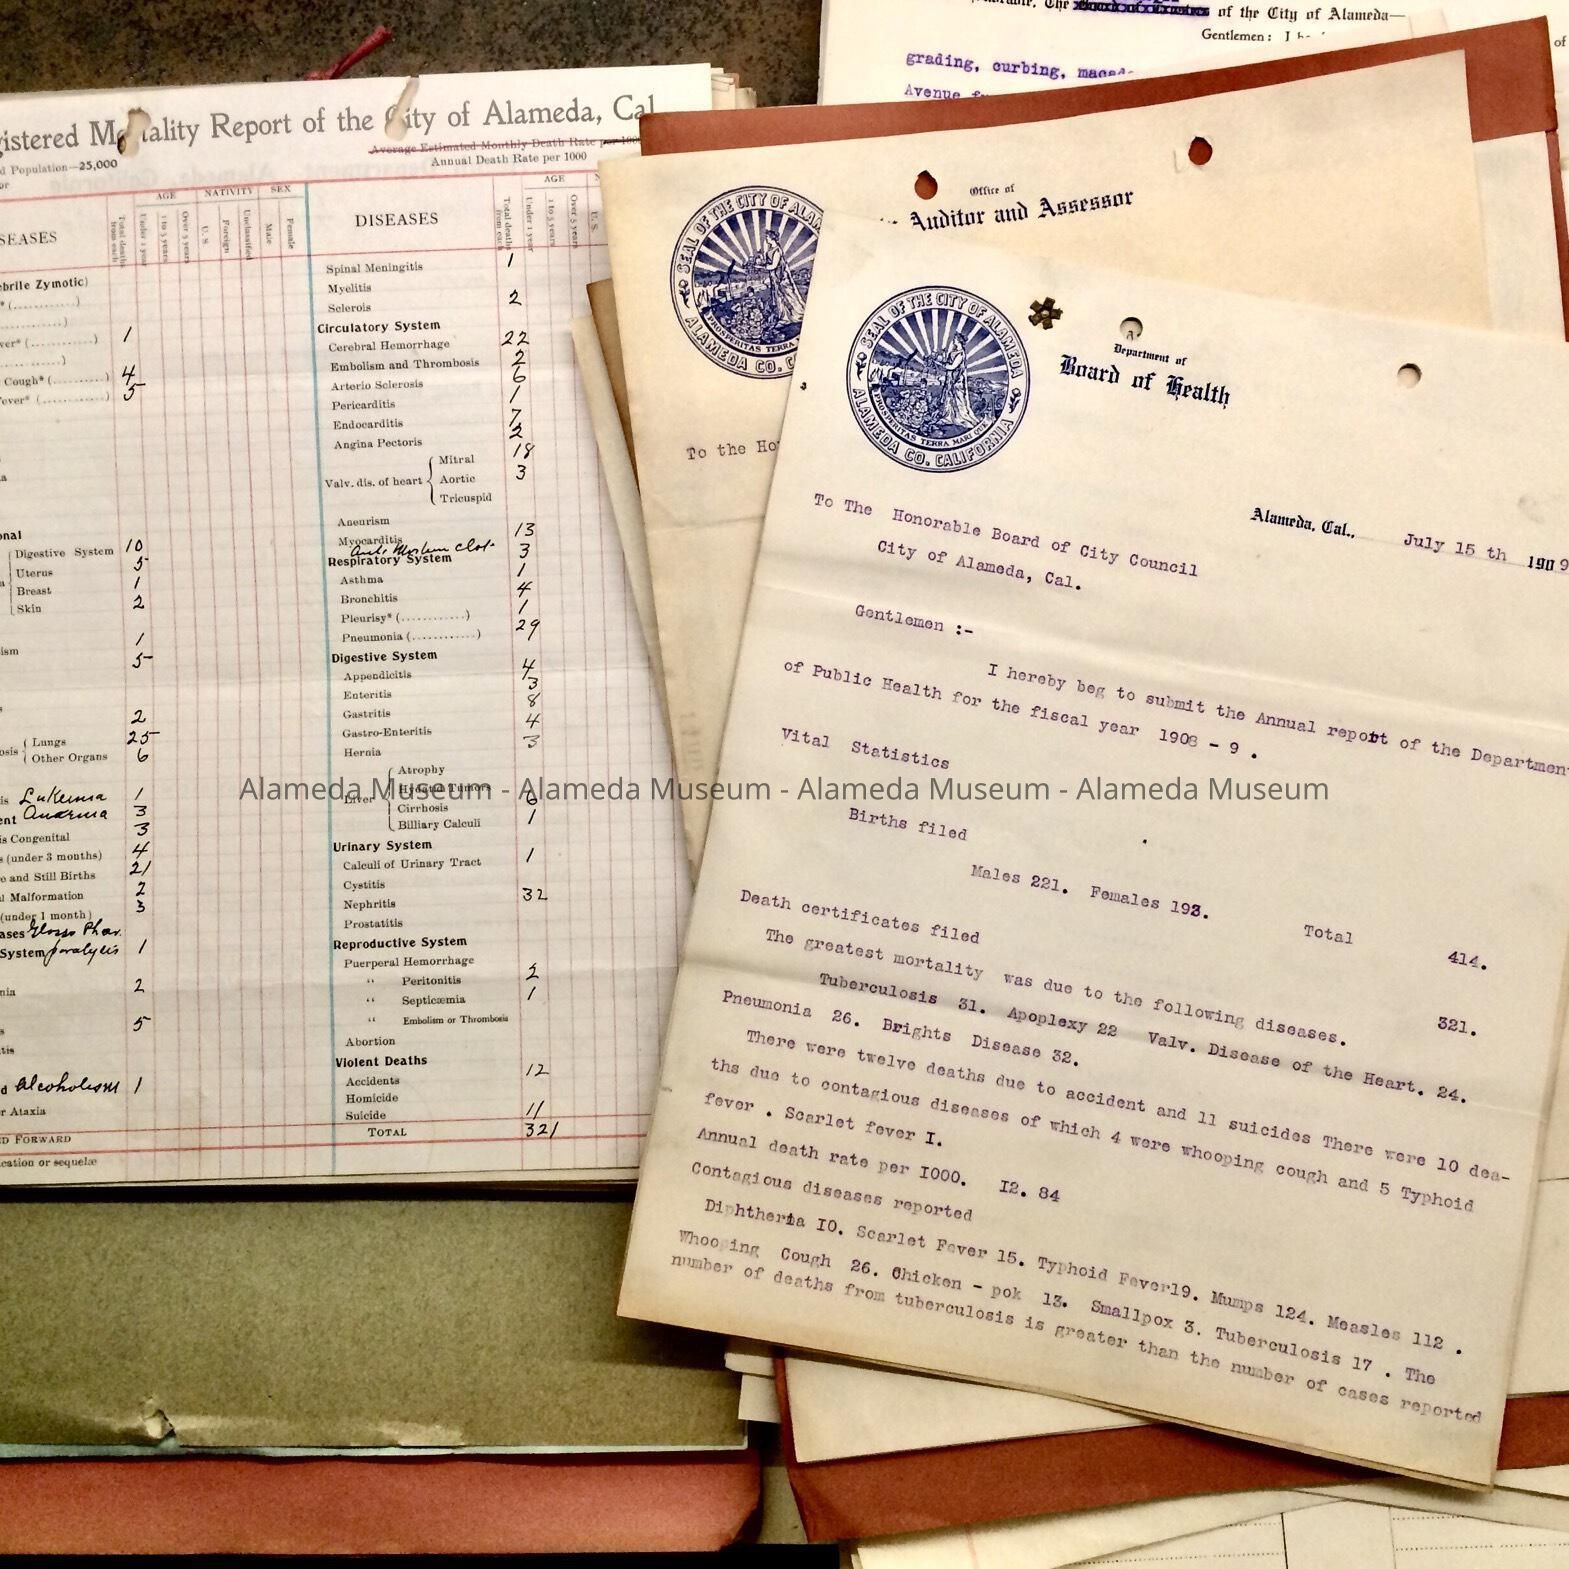 gistered Mortality Report of the City of Alameda, Cal
d Population—25,000
Average Estimated Monthly Death Rate per 100
Annual Death Rate per 1000
SEASES
Total deaths from each
AGE
Under 1 year
1 to 5 years
Over 5 years
NATIVITY
U. S.
Foreign
Unclassified
SEX
Male
Female
ebrile Zymotic)
* (............)
............)
ver* (............) 1
............)
Cough* (............) 4
ever* (............) 5
a
onal
Digestive System 10
Uterus 5
Breast 1
Skin 2
1
ism 5
2
osis Lungs 25
Other Organs 6
is Lukemia 1
ent Anærmia 3
is Congenital 3
s (under 3 months) 4
e and Still Births 21
l Malformation 2
(under 1 month) 3
ases
System paralysis 1
nia 2
s 5
tis
d alcoholism 1
r Ataxia
D FORWARD
cation or sequelæ
DISEASES
Total deaths from each
AGE
Under 1 year
1 to 5 years
Over 5 years
U. S.
Spinal Meningitis 1
Myelitis
Sclerois 2
Circulatory System
Cerebral Hemorrhage 22
Embolism and Thrombosis 2
Arterio Sclerosis 6
Pericarditis 1
Endocarditis 7
Angina Pectoris 2
Valv. dis. of heart
Mitral 18
Aortic 3
Tricuspid
Aneurism
Myocarditis 13
clot 3
Respiratory System
Asthma 1
Bronchitis 4
Pleurisy* (............) 1
Pneumonia (............) 29
Digestive System
Appendicitis 4
Enteritis 3
Gastritis 8
Gastro-Enteritis 4
Hernia 3
Liver
Atrophy
Hydatid Tumors
Cirrhosis 6
Billiary Calculi 1
Urinary System
Calculi of Urinary Tract 1
Cystitis
Nephritis 32
Prostatitis
Reproductive System
Puerperal Hemorrhage
“ Peritonitis 2
“ Septicæmia 1
“ Embolism or Thrombosis
Abortion
Violent Deaths
Accidents 12
Homicide
Suicide 11
TOTAL 321
The of the City of Alameda—
Gentlemen:
grading, curbing, macad
Avenue
of
Office of
Auditor and Assessor
SEAL OF THE CITY OF ALAM
ALAMEDA CO. C
PROSPERITAS TERRA
To the Ho
SEAL OF THE CITY OF ALAMEDA
ALAMEDA CO. CALIFORNIA
PROSPERITAS TERRA MARI QUE
Department of
Board of Health
Alameda, Cal., July 15 th 1909
To The Honorable Board of City Council
City of Alameda, Cal.
Gentlemen :-
I hereby beg to submit the Annual report of the Departmen
of Public Health for the fiscal year 1908 - 9 .
Vital Statistics
Births filed
Males 221. Females 193.
Total 414.
Death certificates filed 321.
The greatest mortality was due to the following diseases.
Tuberculosis 31. Apoplexy 22 Valv. Disease of the Heart. 24.
Pneumonia 26. Brights Disease 32.
There were twelve deaths due to accident and 11 suicides There were 10 dea-
ths due to contagious diseases of which 4 were whooping cough and 5 Typhoid
fever . Scarlet fever I.
Annual death rate per I000. I2. 84
Contagious diseases reported
Diphtheria I0. Scarlet Fever 15. Typhoid Fever19. Mumps 124. Measles 112 .
Whooping Cough 26. Chicken - pok 13. Smallpox 3. Tuberculosis 17 . The
number of deaths from tuberculosis is greater than the number of cases reported
Alameda Museum - Alameda Museum - Alameda Museum - Alameda Museum